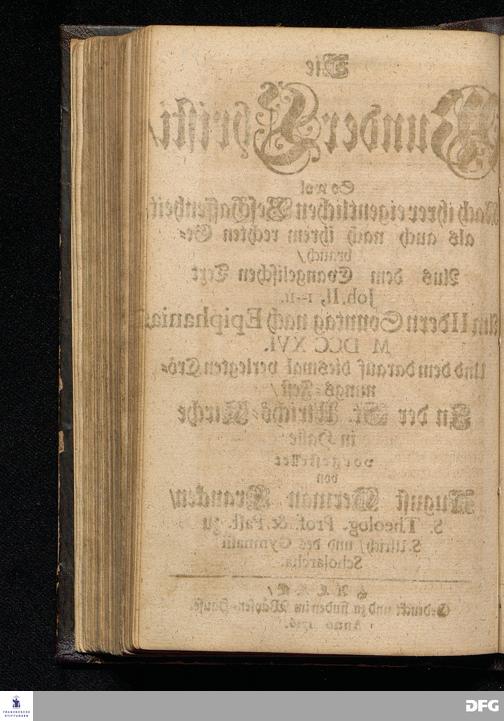 Die
Wunder Christi/
So wol
Nach ihrer eigentlichen Beschaffenheit
als auch nach ihrem rechten Ge-
brauch/
Aus dem Evangelischen Text
Joh. II, 1-11.
Am II dern Sonntag nach Epiphanias
M DCC XVI.
Und dem darauf diesmal verlegten Crö-
nungs-Fest/
In der St. Ulrichs-Kirche
in Halle
vorgestellet
von
August Herman Francken/
S. Theolog. Prof. & Past. zu
S. Ulrich/ und des Gymnasii
Scholarcha.
HALLE/
Gedruckt und zu finden im Wäysen-Hause.
Anno 1716.
FRANCKESCHE
STIFTUNGEN
DFG